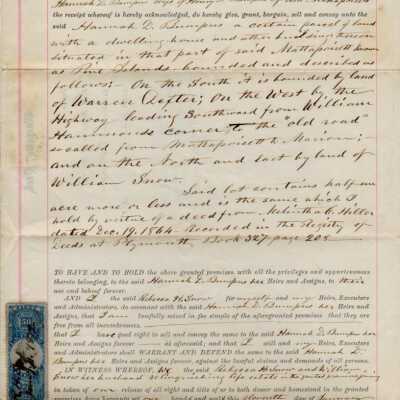 Hannah D. Bumpus wife of
the receipt whereof is hereby acknowledged, do hereby give, grant, bargain, sell and convey unto the
said Hannah D. Bumpus a certain parcel of land
with a dwelling house and other buildings thereon
situated in that part of said Mattapoisett known
as Pine Islands bounded and described as
follows:- On the South it is bounded by land
of Warren ; On the West by the
Highway leading Southward from William
Hammonds corner to the "old road"
so called from Mattapoisett to Marion;
and on the North and East by land of
William Snow.
Said lot contains half an
acre more or less and is the same which I
hold by virtue of a deed from
dated Dec. 19. 1864. Recorded in the Registry of
Deeds at Plymouth Book 327 page 208
TO HAVE AND TO HOLD the above granted premises with all the privileges and appurtenances
thereto belonging, to the said Hannah D. Bumpus her Heirs and Assigns, to their
use and behoof forever.
AND I the said Rebecca H. Snow for myself and my Heirs, Executors
and Administrators, do covenant with the said Hannah D. Bumpus her Heirs and
Assigns, that I am lawfully seized in fee simple of the aforegranted premises that they
are free from all incumbrances.
that I have good right to sell and convey the same to the said Hannah D. Bumpus her
Heirs and Assigns forever as aforesaid; and that I will and my Heirs, Executors
and Administrators shall WARRANT AND DEFEND the same to the said Hannah D.
Bumpus her Heirs and Assigns forever, against the lawful claims and demands of all persons.
IN WITNESS WHEREOF, We the said Rebecca H. Snow and William
Snow her husband
in token of our release of all right and title of or to both dower and homestead in the granted
premises